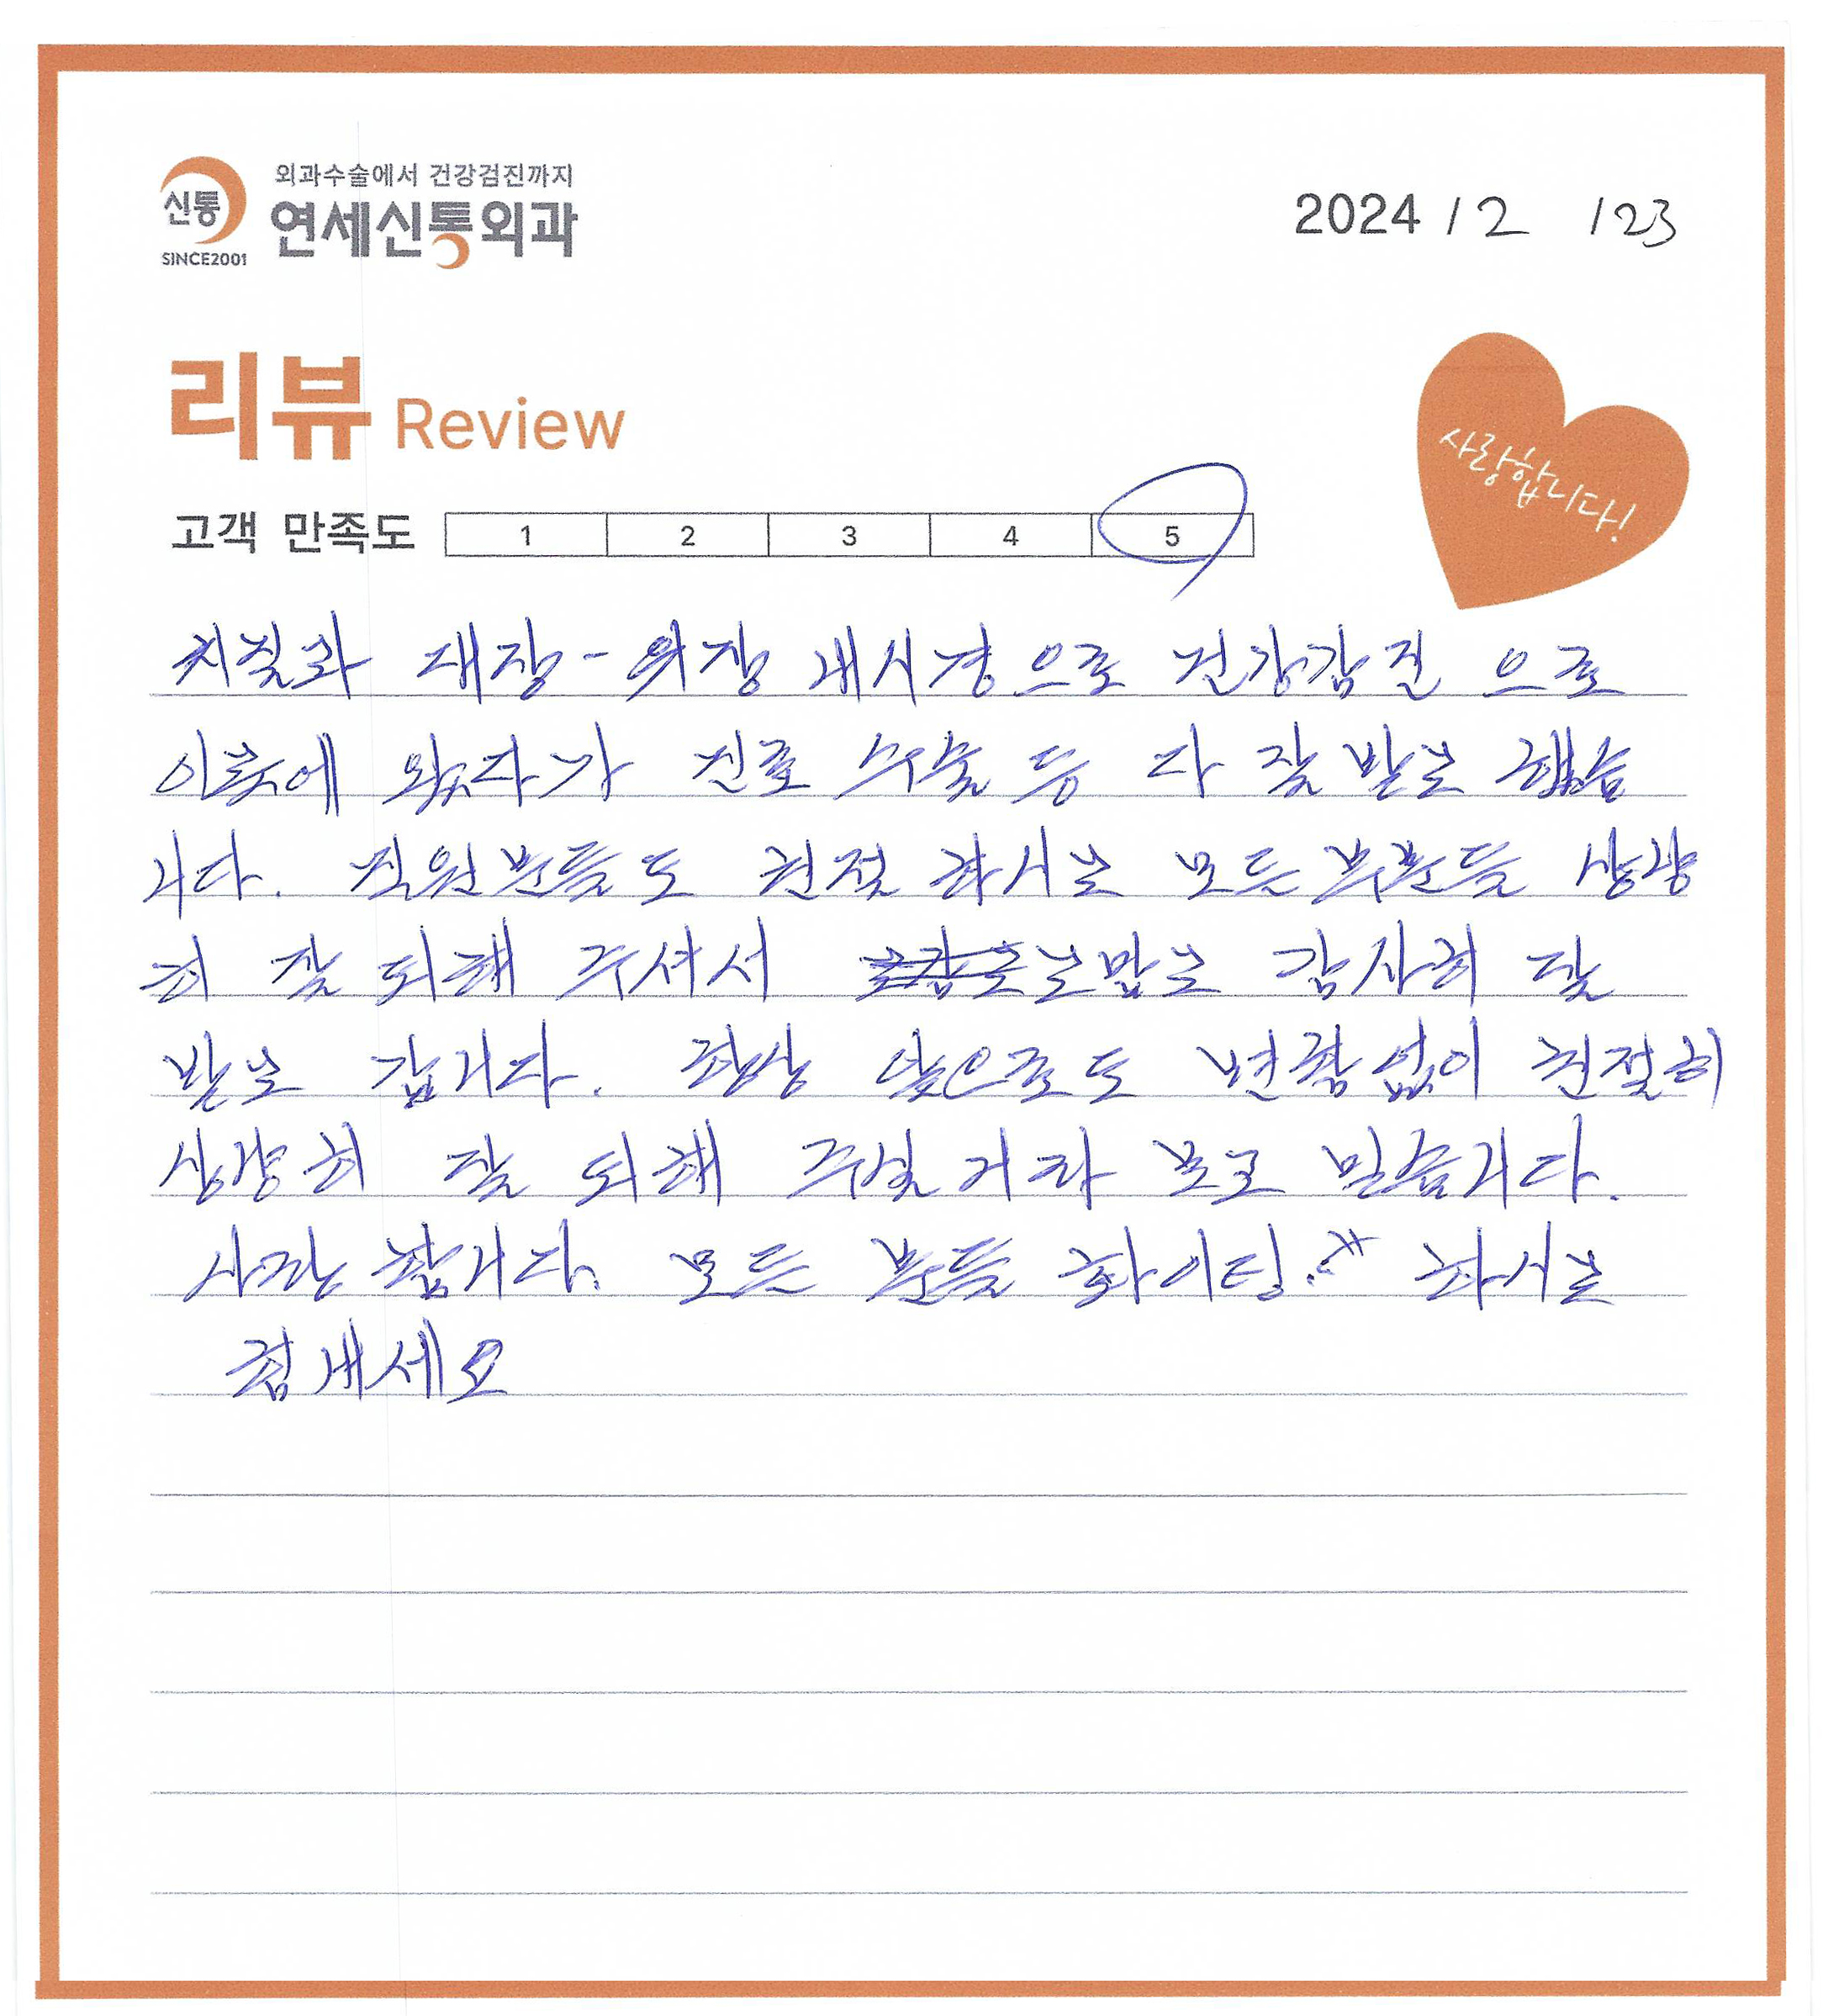 신통
SINCE2001
외과수술에서 건강검진까지
연세신통외과
2024 / 2 / 23
리뷰 Review
사랑합니다!
고객 만족도 1 2 3 4 5
치질과 대장-위장 내시경으로 건강검진 으로
이곳에 왔다가 진료 수술 등 다 잘 받고 했습
니다. 직원분들도 친절 하시고 모든 부분들 상냥
히 잘 되해 주셔서 고맙고 감사히 잘
받고 갑니다. 항상 앞으로도 변함없이 친절히
상냥히 잘 되해 주실거라 보고 믿습니다.
사랑합니다. 모든 분들 화이팅!! 하시고
힘내세요